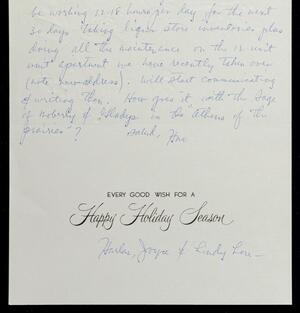 be working 12-18 hours per day for the next
30 days taking liquor store inventories plus
doing all the maintenance on the 12 unit
apartment we have recently taken over
(note new address). Will start communicating
of writing then. How goes it with the Sage
of Moberly & Gladys in the "Athens of the
prairies"?
EVERY GOOD WISH FOR A
Happy Holiday Season
Harlan, Joyce & Cindy Lou